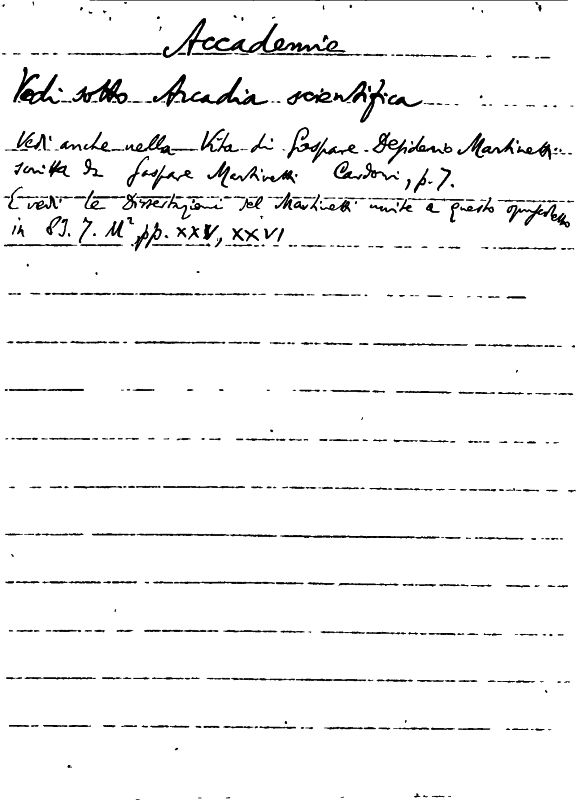 Accademie
Vedi sotto Arcadia scientifica
Vedi anche nella Vita di Gaspare Desiderio Martinetti
scritta da Gaspare Martinetti Cardoni, p. 7.
E vedi le Dissertazioni del Martinetti unite a questo opuscoletto
in 83. 7. M² pp. XXV, XXVI